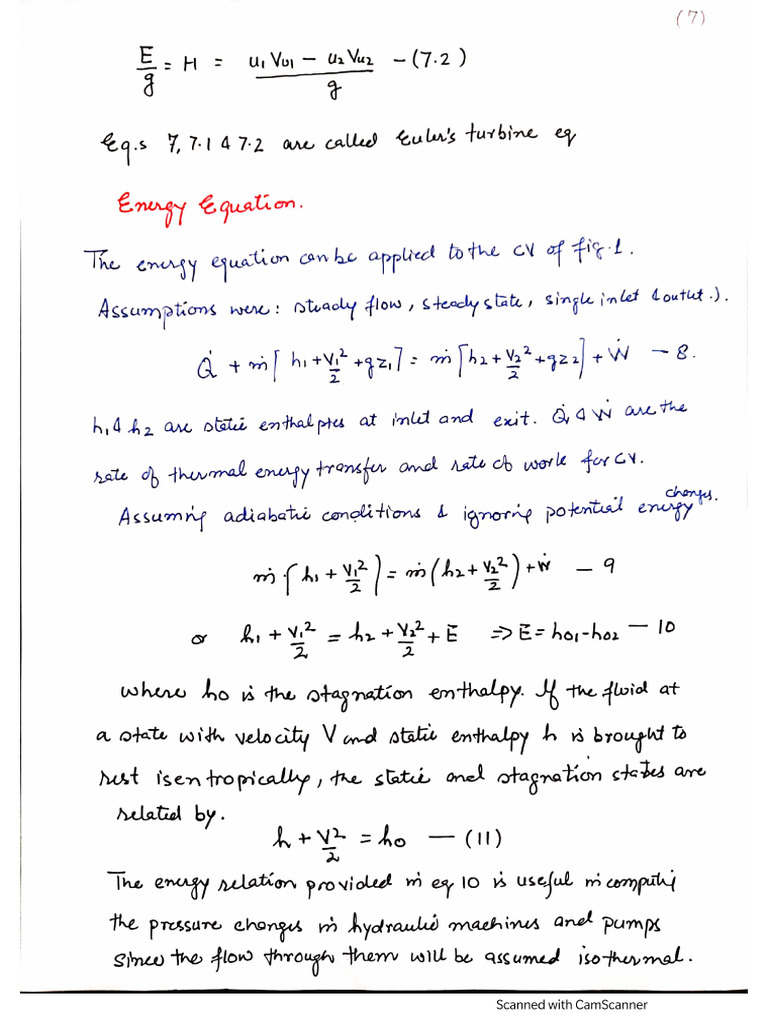 (7)
E/g = H = (u₁ Vu₁ − u₂ Vu₂)/g − (7.2)
Eq.s 7, 7.1 & 7.2 are called Euler's turbine eq
Energy Equation.
The energy equation can be applied to the CV of fig.1.
Assumptions were: steady flow, steady state, single inlet & outlet.).
Q̇ + ṁ[h₁ + V₁²/2 + gz₁] = ṁ[h₂ + V₂²/2 + gz₂] + Ẇ − 8.
h₁ & h₂ are static enthalpies at inlet and exit. Q̇ & Ẇ are the
rate of thermal energy transfer and rate of work for CV.
Assuming adiabatic conditions & ignoring potential energy changes.
ṁ(h₁ + V₁²/2) = ṁ(h₂ + V₂²/2) + Ẇ − 9
or h₁ + V₁²/2 = h₂ + V₂²/2 + E ⇒ E = h₀₁ - h₀₂ − 10
where h₀ is the stagnation enthalpy. If the fluid at
a state with velocity V and static enthalpy h is brought to
rest isentropically, the static and stagnation states are
related by.
h + V²/2 = h₀ − (11)
The energy relation provided in eq 10 is useful in computing
the pressure changes in hydraulic machines and pumps
since the flow through them will be assumed isothermal.
Scanned with CamScanner